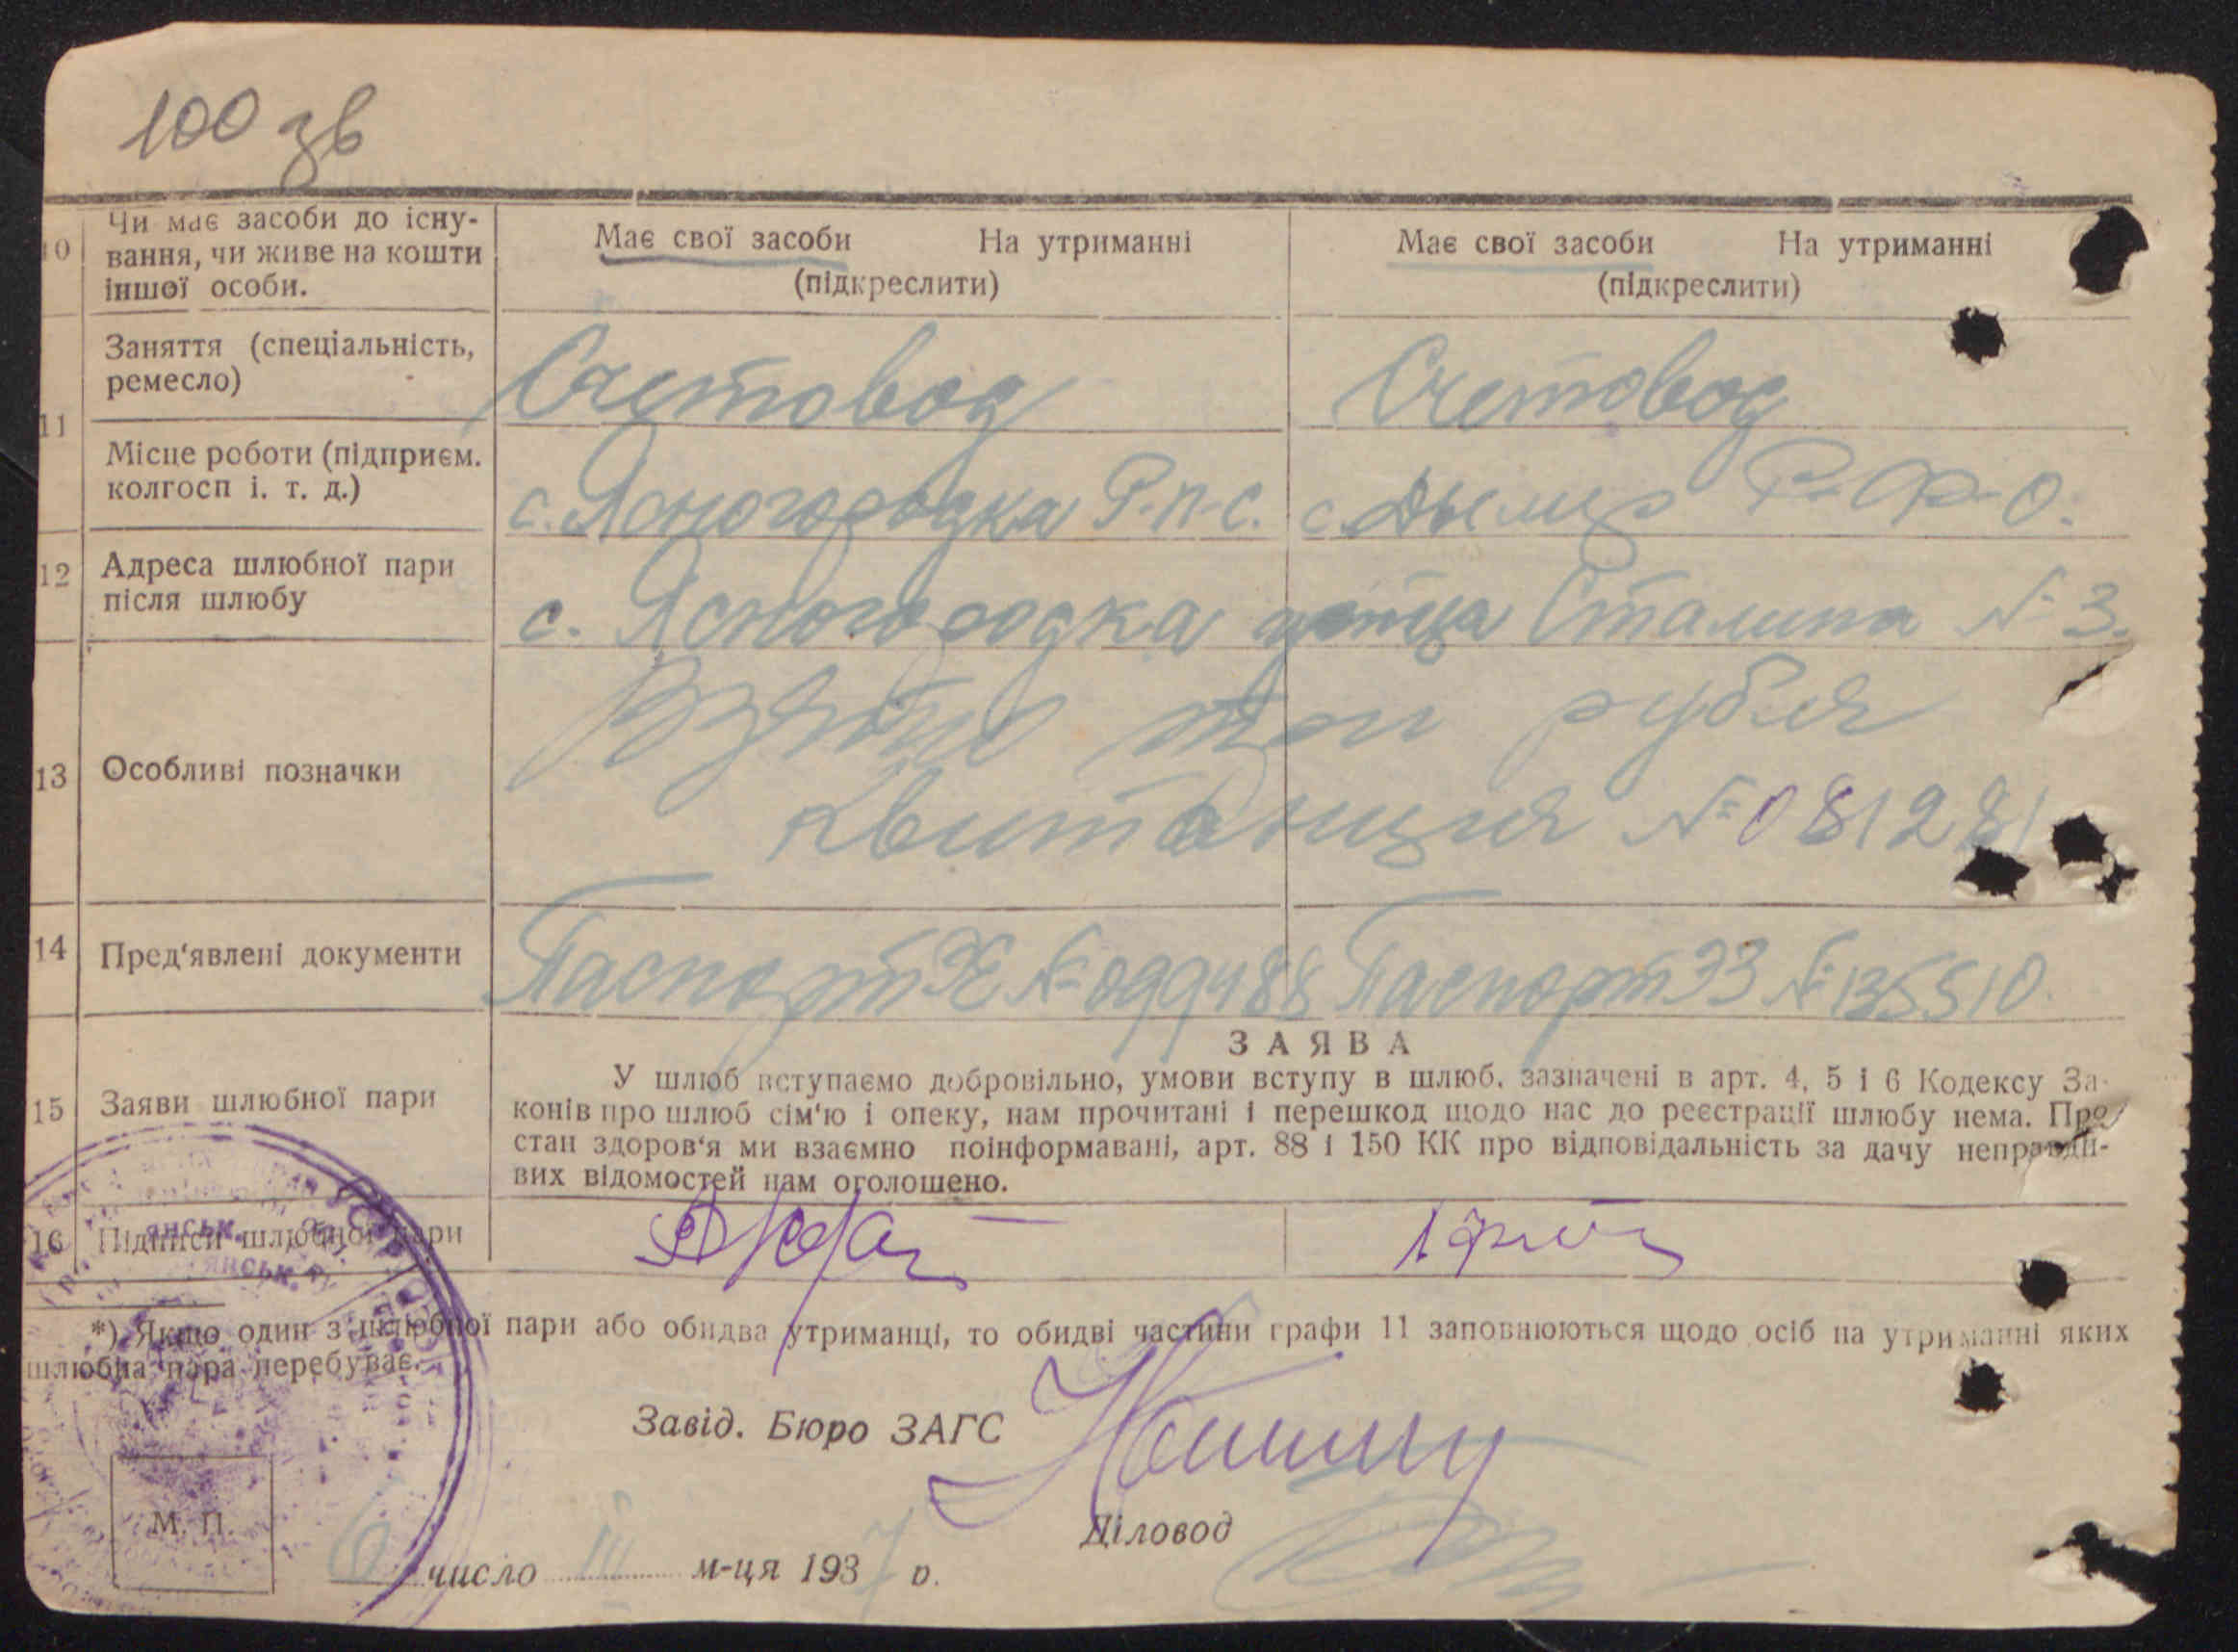 100 зв
10 Чи має засоби до існу-
вання, чи живе на кошти
іншої особи.
Має свої засоби На утриманні
(підкреслити)
Має свої засоби На утриманні
(підкреслити)
11 Заняття (спеціальність,
ремесло)
Счетовод
Счетовод
Місце роботи (підприєм.
колгосп і. т. д.)
с. Ясногородка Р-п-с.
с. Дымер Р-Ф-О.
12 Адреса шлюбної пари
після шлюбу
с. Ясногородка Сталина № 3.
13 Особливі позначки
Взято три рубля
Квитанция № 081281
14 Пред'явлені документи
Паспорт № 099488
Паспорт ЭЗ № 135510
15 Заяви шлюбної пари
ЗАЯВА
У шлюб вступаємо добровільно, умови вступу в шлюб, зазначені в арт. 4, 5 і 6 Кодексу За-
конів про шлюб сім'ю і опеку, нам прочитані і перешкод щодо нас до реєстрації шлюбу нема. Про
стан здоров'я ми взаємно поінформавані, арт. 88 і 150 КК про відповідальність за дачу неправди-
вих відомостей нам оголошено.
16 Підписи шлюбної пари
*) Якщо один з шлюбної пари або обидва утриманці, то обидві частини графи 11 заповнюються щодо осіб на утриманні яких
шлюбна пара перебуває.
Завід. Бюро ЗАГС
Діловод
М. П.
6 число III м-ця 1937 р.